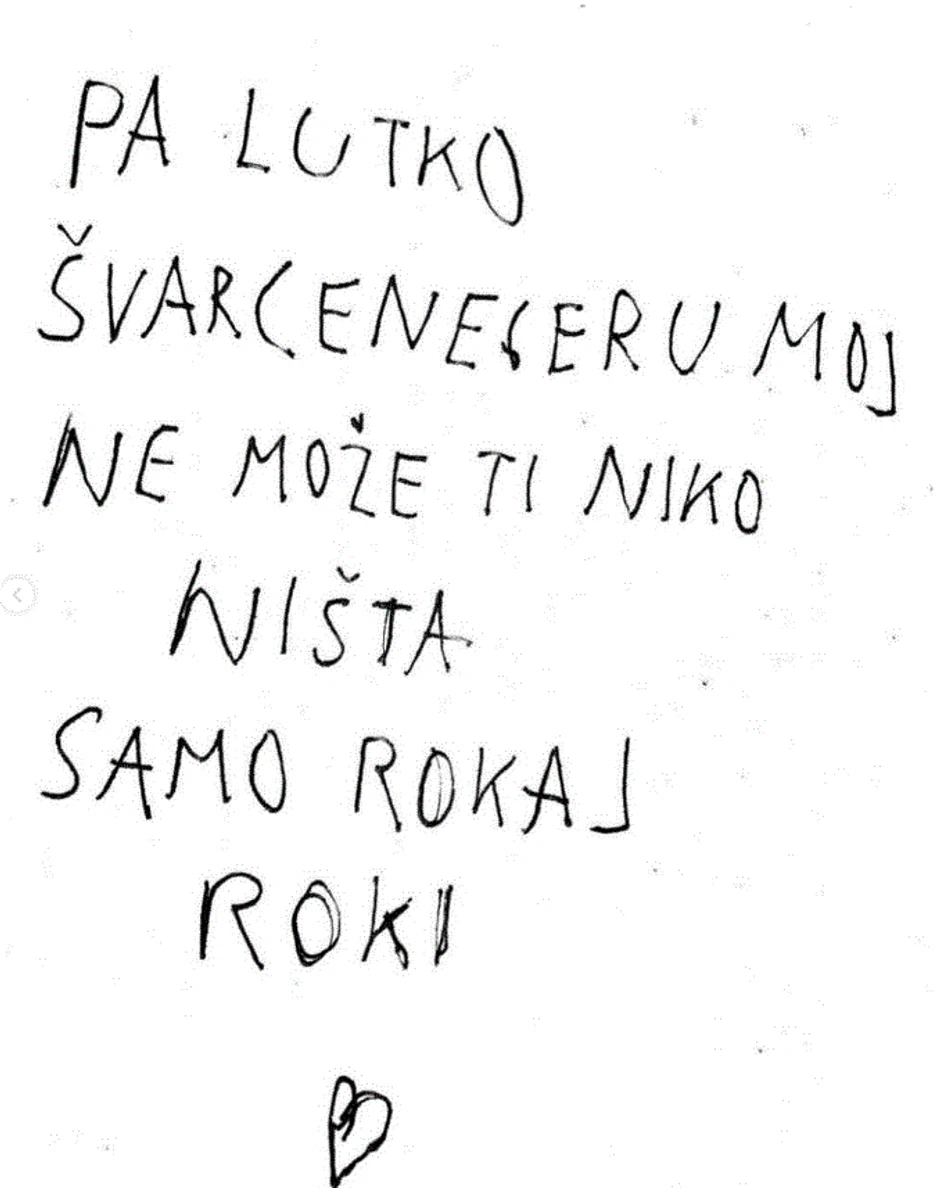 PA LUTKO
ŠVARCENEGERU MOJ
NE MOŽE TI NIKO
NIŠTA
SAMO ROKAJ
ROKI